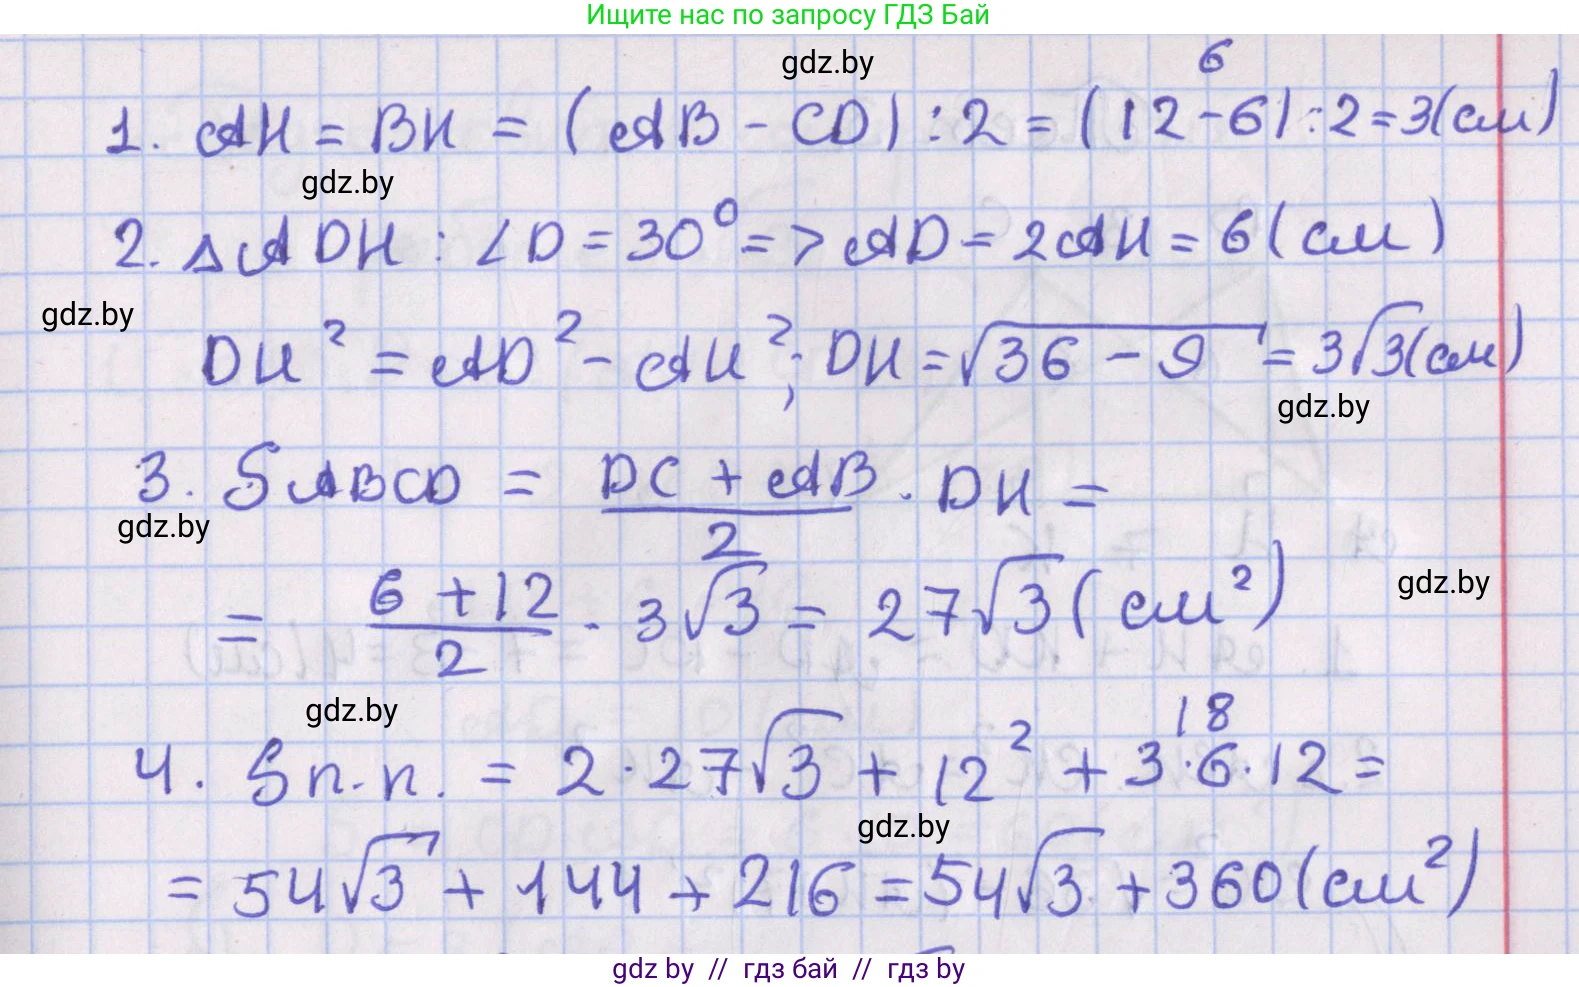 Ищите нас по запросу ГДЗ Бай
gdz.by
6
1. AH = BK = (AB - CD) : 2 = (12-6) : 2 = 3(см)
gdz.by
2. △ADH : ∠D = 30⁰ => AD = 2AH = 6 (см)
gdz.by
DH² = AD² - AH²; DH = √36 - 9 = 3√3(см)
gdz.by
3. SABCD = DC + AB / 2 · DH =
gdz.by
= 6 + 12 / 2 · 3√3 = 27√3 (см²)
gdz.by
gdz.by
18
4. Sп.п. = 2·27√3 + 12² + 3·6·12 =
gdz.by
= 54√3 + 144 + 216 = 54√3 + 360 (см²)
gdz by // гдз бай // гдз by